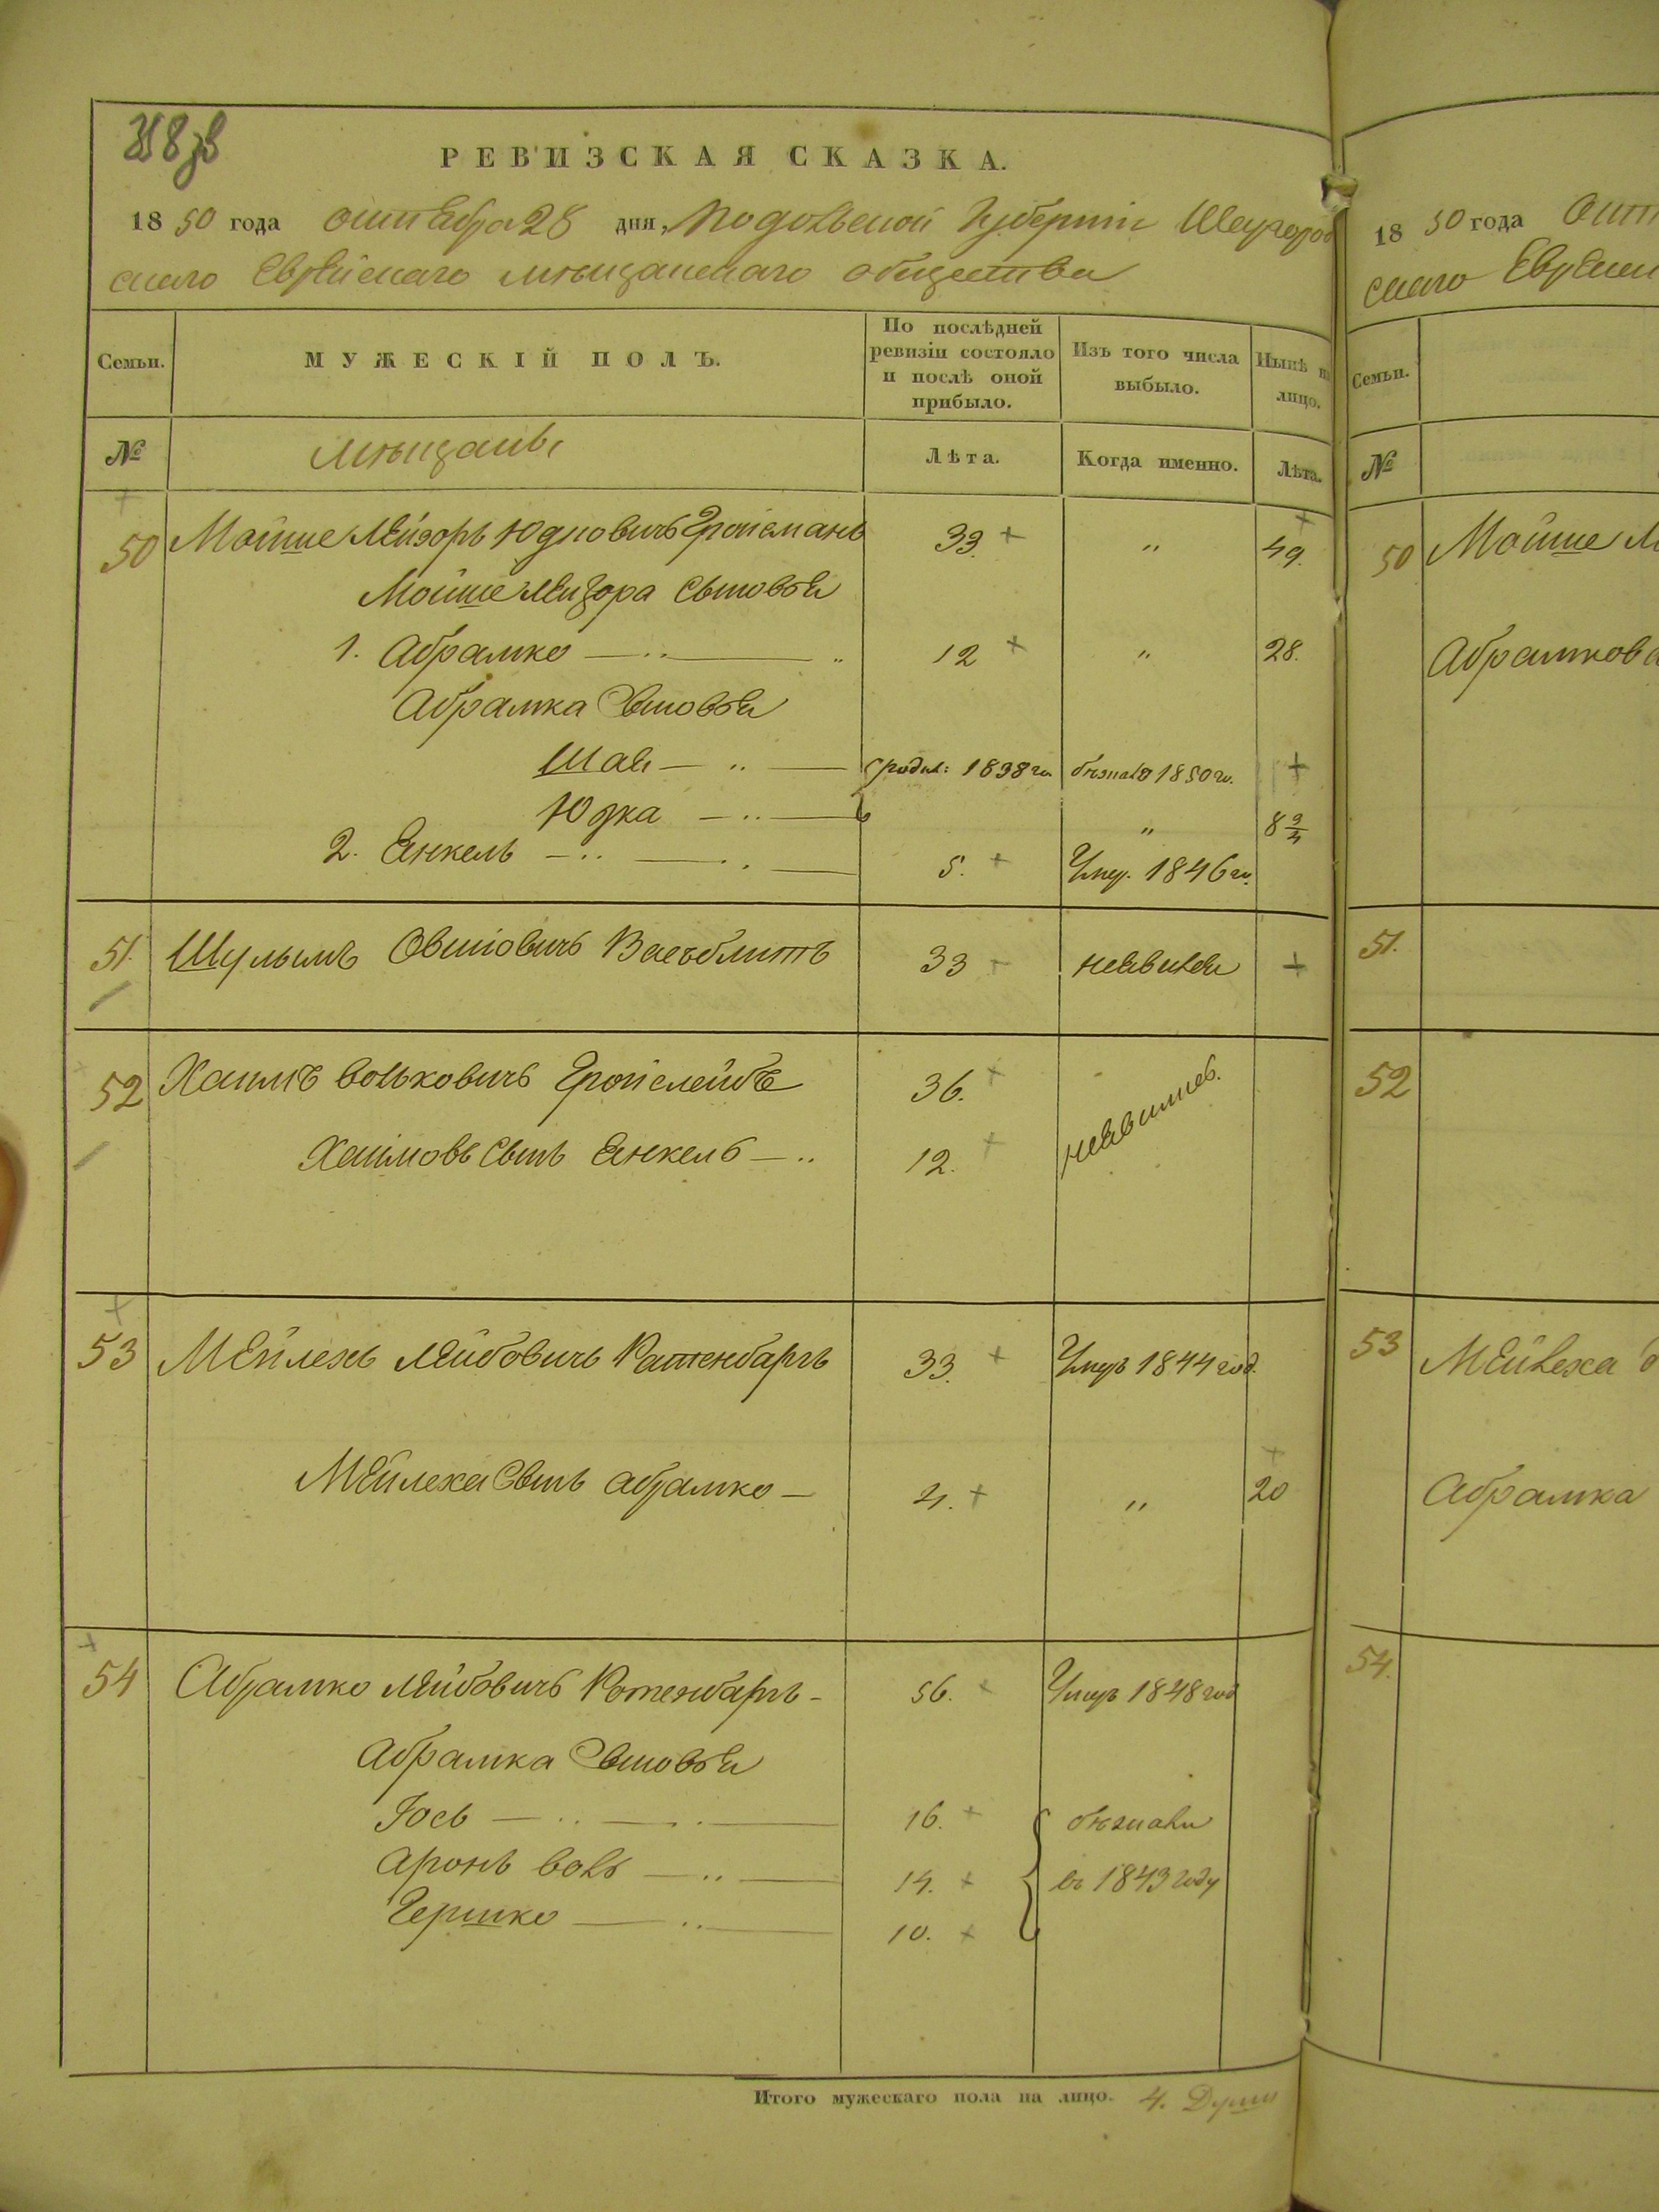 РЕВИЗСКАЯ СКАЗКА.
1850 года октября 28 дня, Подольской Губерніи Шаргород
скаго Еврейскаго мѣщанскаго общества
Семьи. МУЖЕСКІЙ ПОЛЪ. По послѣдней ревизіи состояло и послѣ оной прибыло. Изъ того числа выбыло. Нынѣ на лицо.
№ мѣщане Лѣта. Когда именно. Лѣта.
50 Мойше Лейзоръ Юдковичъ Гройсманъ 33. + " 49.
Мойше Лейзора сыновья
1. Абрамко — " — " 12 + " 28.
Абрамка сыновья
Шая — " — родил: 1838 го бѣжалъ 1850 го. +
Юдка — " — " 8 3/4
2. Янкель — " — " — 5. + Умер. 1846 го.
51. Шулымъ Овшіовичъ 33 неявился +
52 Хаимъ Вольковичъ Гройслейбъ 36. + неявились.
Хаимовъ сынъ Янкель — " 12. +
53 Мейлехъ Лейбовичъ Ратенбаргъ 33. + Умеръ 1844 год.
Мейлеха сынъ Абрамко — 4. + " 20
54 Абрамко Лейбовичъ Ротенбаргъ - 56. + Умеръ 1848 год
Абрамка сыновья
Іось — " — " — 16. + бѣжали
Аронъ Воль — " — 14. + въ 1843 году
Гершко — " — 10. +
Итого мужескаго пола на лицо. 4. Души
1850 года Окт
скаго Еврейск
Семьи.
№
50 Мойше Л
Абрамкова
51.
52
53 Мейлеха
Абрамка
54.